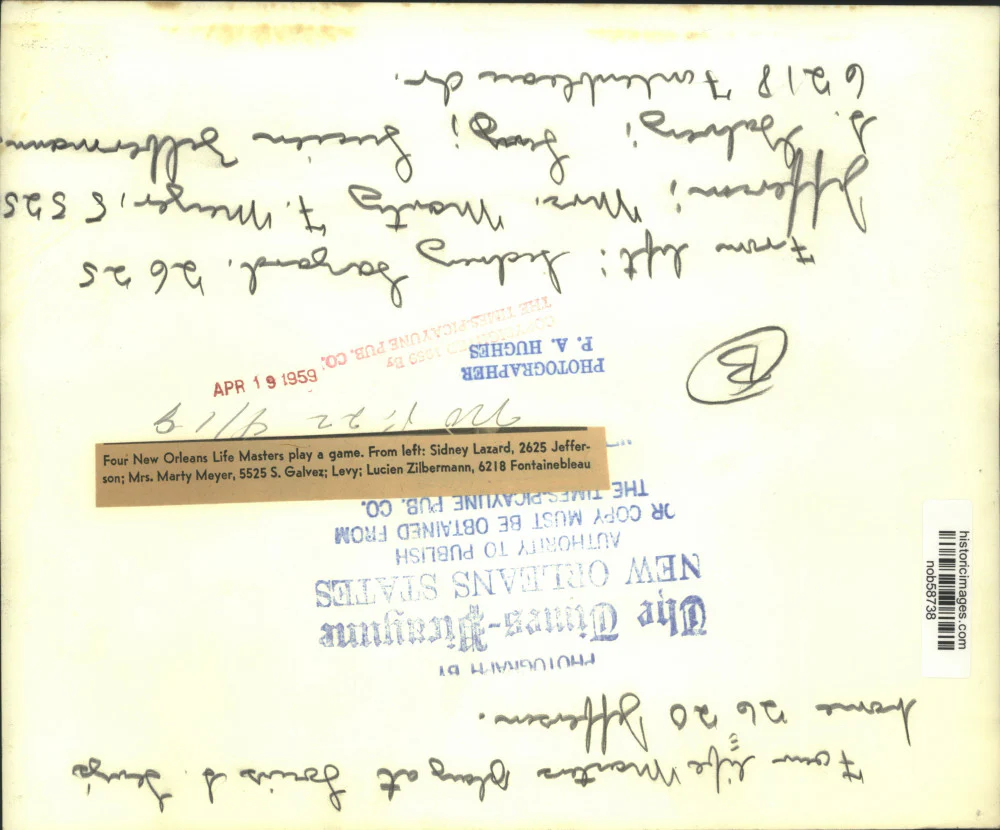 Four life Masters play at Louis S. Levy's
home 2620 Jefferson.
PHOTOGRAPH BY
The Times-Picayune
NEW ORLEANS STATES
AUTHORITY TO PUBLISH
OR COPY MUST BE OBTAINED FROM
THE TIMES-PICAYUNE PUB. CO.
Four New Orleans Life Masters play a game. From left: Sidney Lazard, 2625 Jeffer-
son; Mrs. Marty Meyer, 5525 S. Galvez; Levy; Lucien Zilbermann, 6218 Fontainebleau
22 4/19
APR 19 1959
B
PHOTOGRAPHER
P. A. HUGHES
COPYRIGHTED 1959 By
THE TIMES-PICAYUNE PUB. CO.
From left: Sidney Lazard, 2625
Jefferson; Mrs. Marty F. Meyer, 5525
S. Galvez; Levy; Lucien Zilbermann,
6218 Fontainbleau dr.
historicimages.com
nob58738